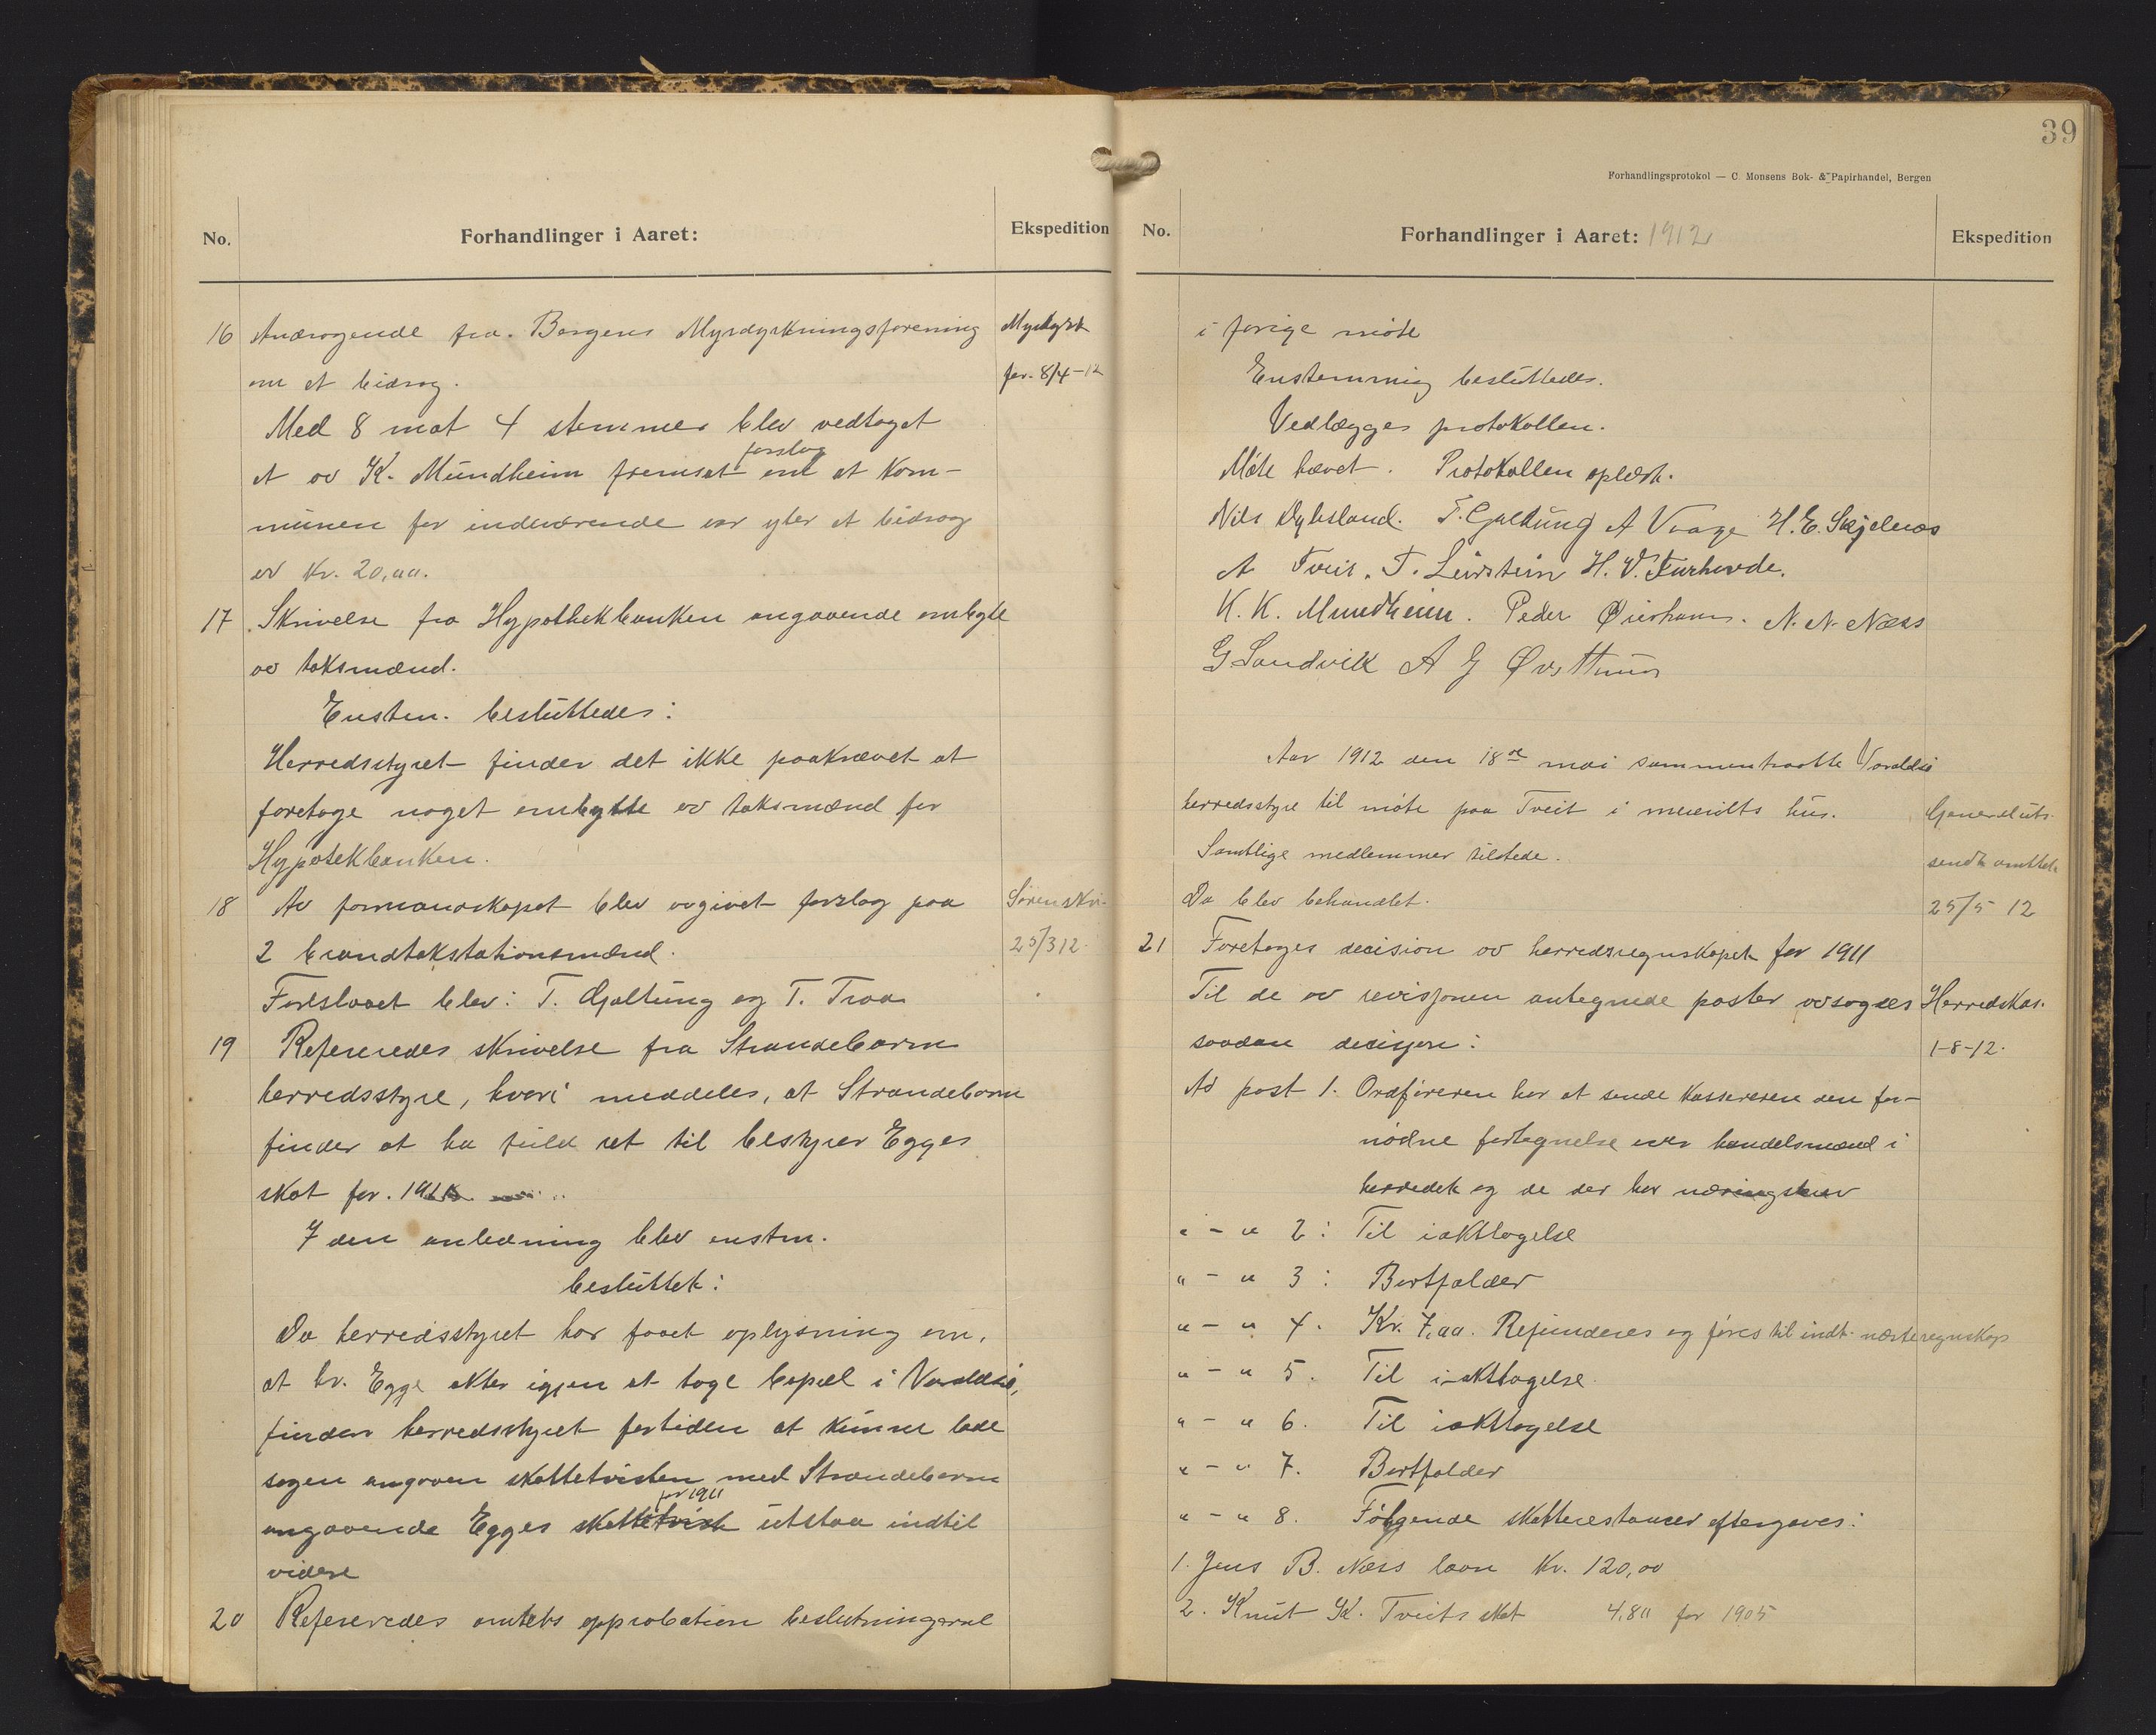 No.
Forhandlinger i Aaret:
Ekspedition
16 Andragende fra. Bergens Myrdyrkningsforening
Myrdyrk
om et bidrag.
for. 8/4-12
Med 8 mot 4 stemmer blev vedtaget
et av K. Mundheim fremsat forslag om at kom-
munen for indeværende aar yter et bidrag
av Kr. 20,00.
17 Skrivelse fra Hypothekbanken angaaende ombytte
av taksmænd.
Enstem. besluttedes:
Herredsstyret finder det ikke paakrævet at
foretage noget ombytte av taksmænd for
Hypotekbanken.
18 Av formandskapet blev avgivet forslag paa
Sorenskri-
2 brandtakstationsmænd.
25/3 12.
Foreslaaet blev: T. Gjaltung og T. Traa
19 Refereredes skrivelse fra Strandebarm
herredsstyre, hvori meddeles, at Strandebarm
finder at ha fuld ret til bestyrer Egges
skat for. 1911
I den anledning blev enstm.
besluttet:
Da herredsstyret har faaet oplysning om,
at hr. Egge akter igjen at tage bopæl i Varaldsø,
finder herredsstyret fortiden at kunne lade
sagen angaaen skattetvisten med Strandebarm
angaaende Egges skat for 1911 utstaa indtil
videre
20 Refereredes amtets approbation beslutningerne
39
Forhandlingsprotokol — C. Monsens Bok- & Papirhandel, Bergen
No.
Forhandlinger i Aaret: 1912
Ekspedition
i forige møte
Enstemmig besluttedes.
Vedlægges protokollen.
Møte hævet. Protokollen oplæst.
Nils Dybsland. T. Gjaltung A Vaage H. E. Skjelnæs
A Tveit. T. Leirstein H. V. Furhovde.
K. K. Mundheim. Peder Øierhavn. N. N. Næss
G Sandvik A J Øvsthuus
Aar 1912 den 18de mai sammentraatte Varaldsø
herredsstyre til møte paa Tveit i menights hus.
Generaluts.
Samtlige medlemmer tilstede.
sendt amtet
Da blev behandlet.
25/5 12
21 Foretages decision av herredsregnskapet for 1911
Til de av revisjonen antegnede poster avsagdes
Herredskas.
saadan decisjon:
1-8-12.
Ad post 1. Ordføreren har at sende kassereren den for-
nødne fortegnelse over handelsmænd i
herredet og de der har næringsskat
" - " 2: Til iakttagelse
" - " 3: Bortfalder
" - " 4. Kr. 7,00. Refunderes og føres til indt. næste regnskap
" - " 5. Til iakttagelse.
" - " 6. Til iakttagelse
" - " 7. Bortfalder
" - " 8. Følgende skatterestancer eftergaves:
1. Jens B. Næss laan Kr. 120,00
2. Knut K. Tveits skat 4,80 for 1905